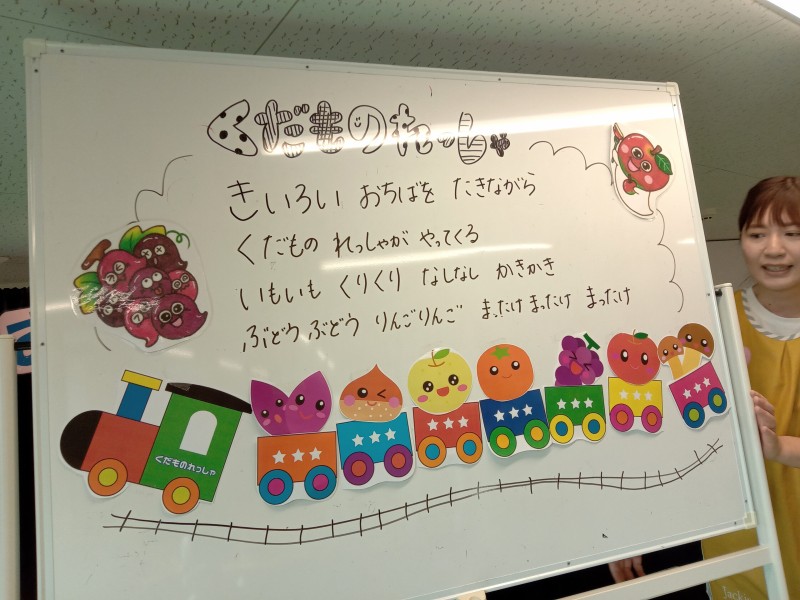 くだものれっしゃ
きいろい おちばを たきながら
くだもの れっしゃが やってくる
いもいも くりくり なしなし かきかき
ぶどうぶどう りんごりんご まったけまったけ まったけ
くだものれっしゃ